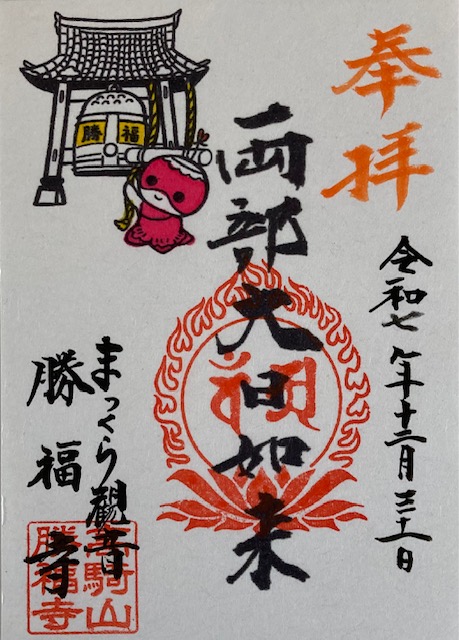 奉拝
令和七年十二月三十一日
両部大日如来
まっくら観音
勝福寺
勝福
騎山
勝福寺